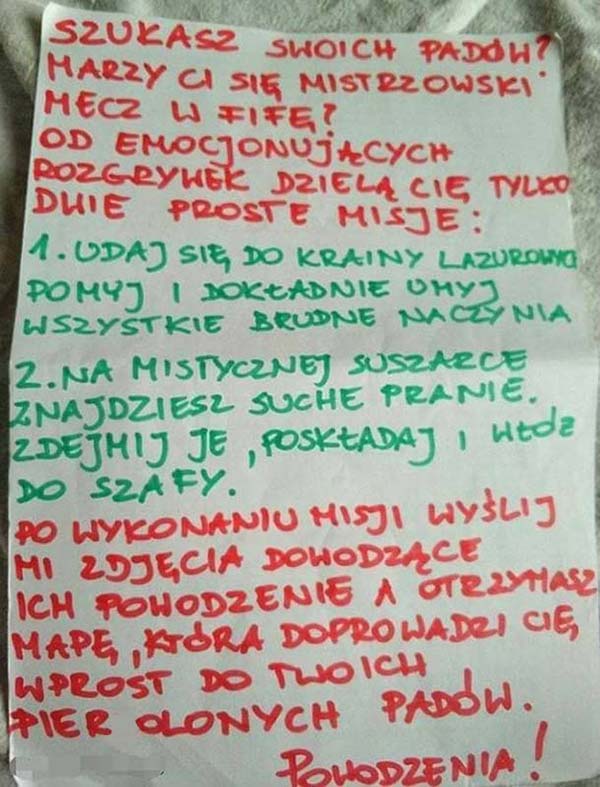 SZUKASZ SWOICH PADÓW?
MARZY CI SIĘ MISTRZOWSKI
MECZ W FIFĘ?
OD EMOCJONUJĄCYCH
ROZGRYWEK DZIELĄ CIĘ TYLKO
DWIE PROSTE MISJE:
1. UDAJ SIĘ DO KRAINY LAZUROWYCH
POMYJ I DOKŁADNIE UMYJ
WSZYSTKIE BRUDNE NACZYNIA
2. NA MISTYCZNEJ SUSZARCE
ZNAJDZIESZ SUCHE PRANIE.
ZDEJMIJ JE, POSKŁADAJ I WŁÓŻ
DO SZAFY.
PO WYKONANIU MISJI WYŚLIJ
MI ZDJĘCIA DOWODZĄCE
ICH POWODZENIE A OTRZYMASZ
MAPĘ, KTÓRA DOPROWADZI CIĘ
WPROST DO TWOICH
PIER OLONYCH PADÓW.
POWODZENIA!